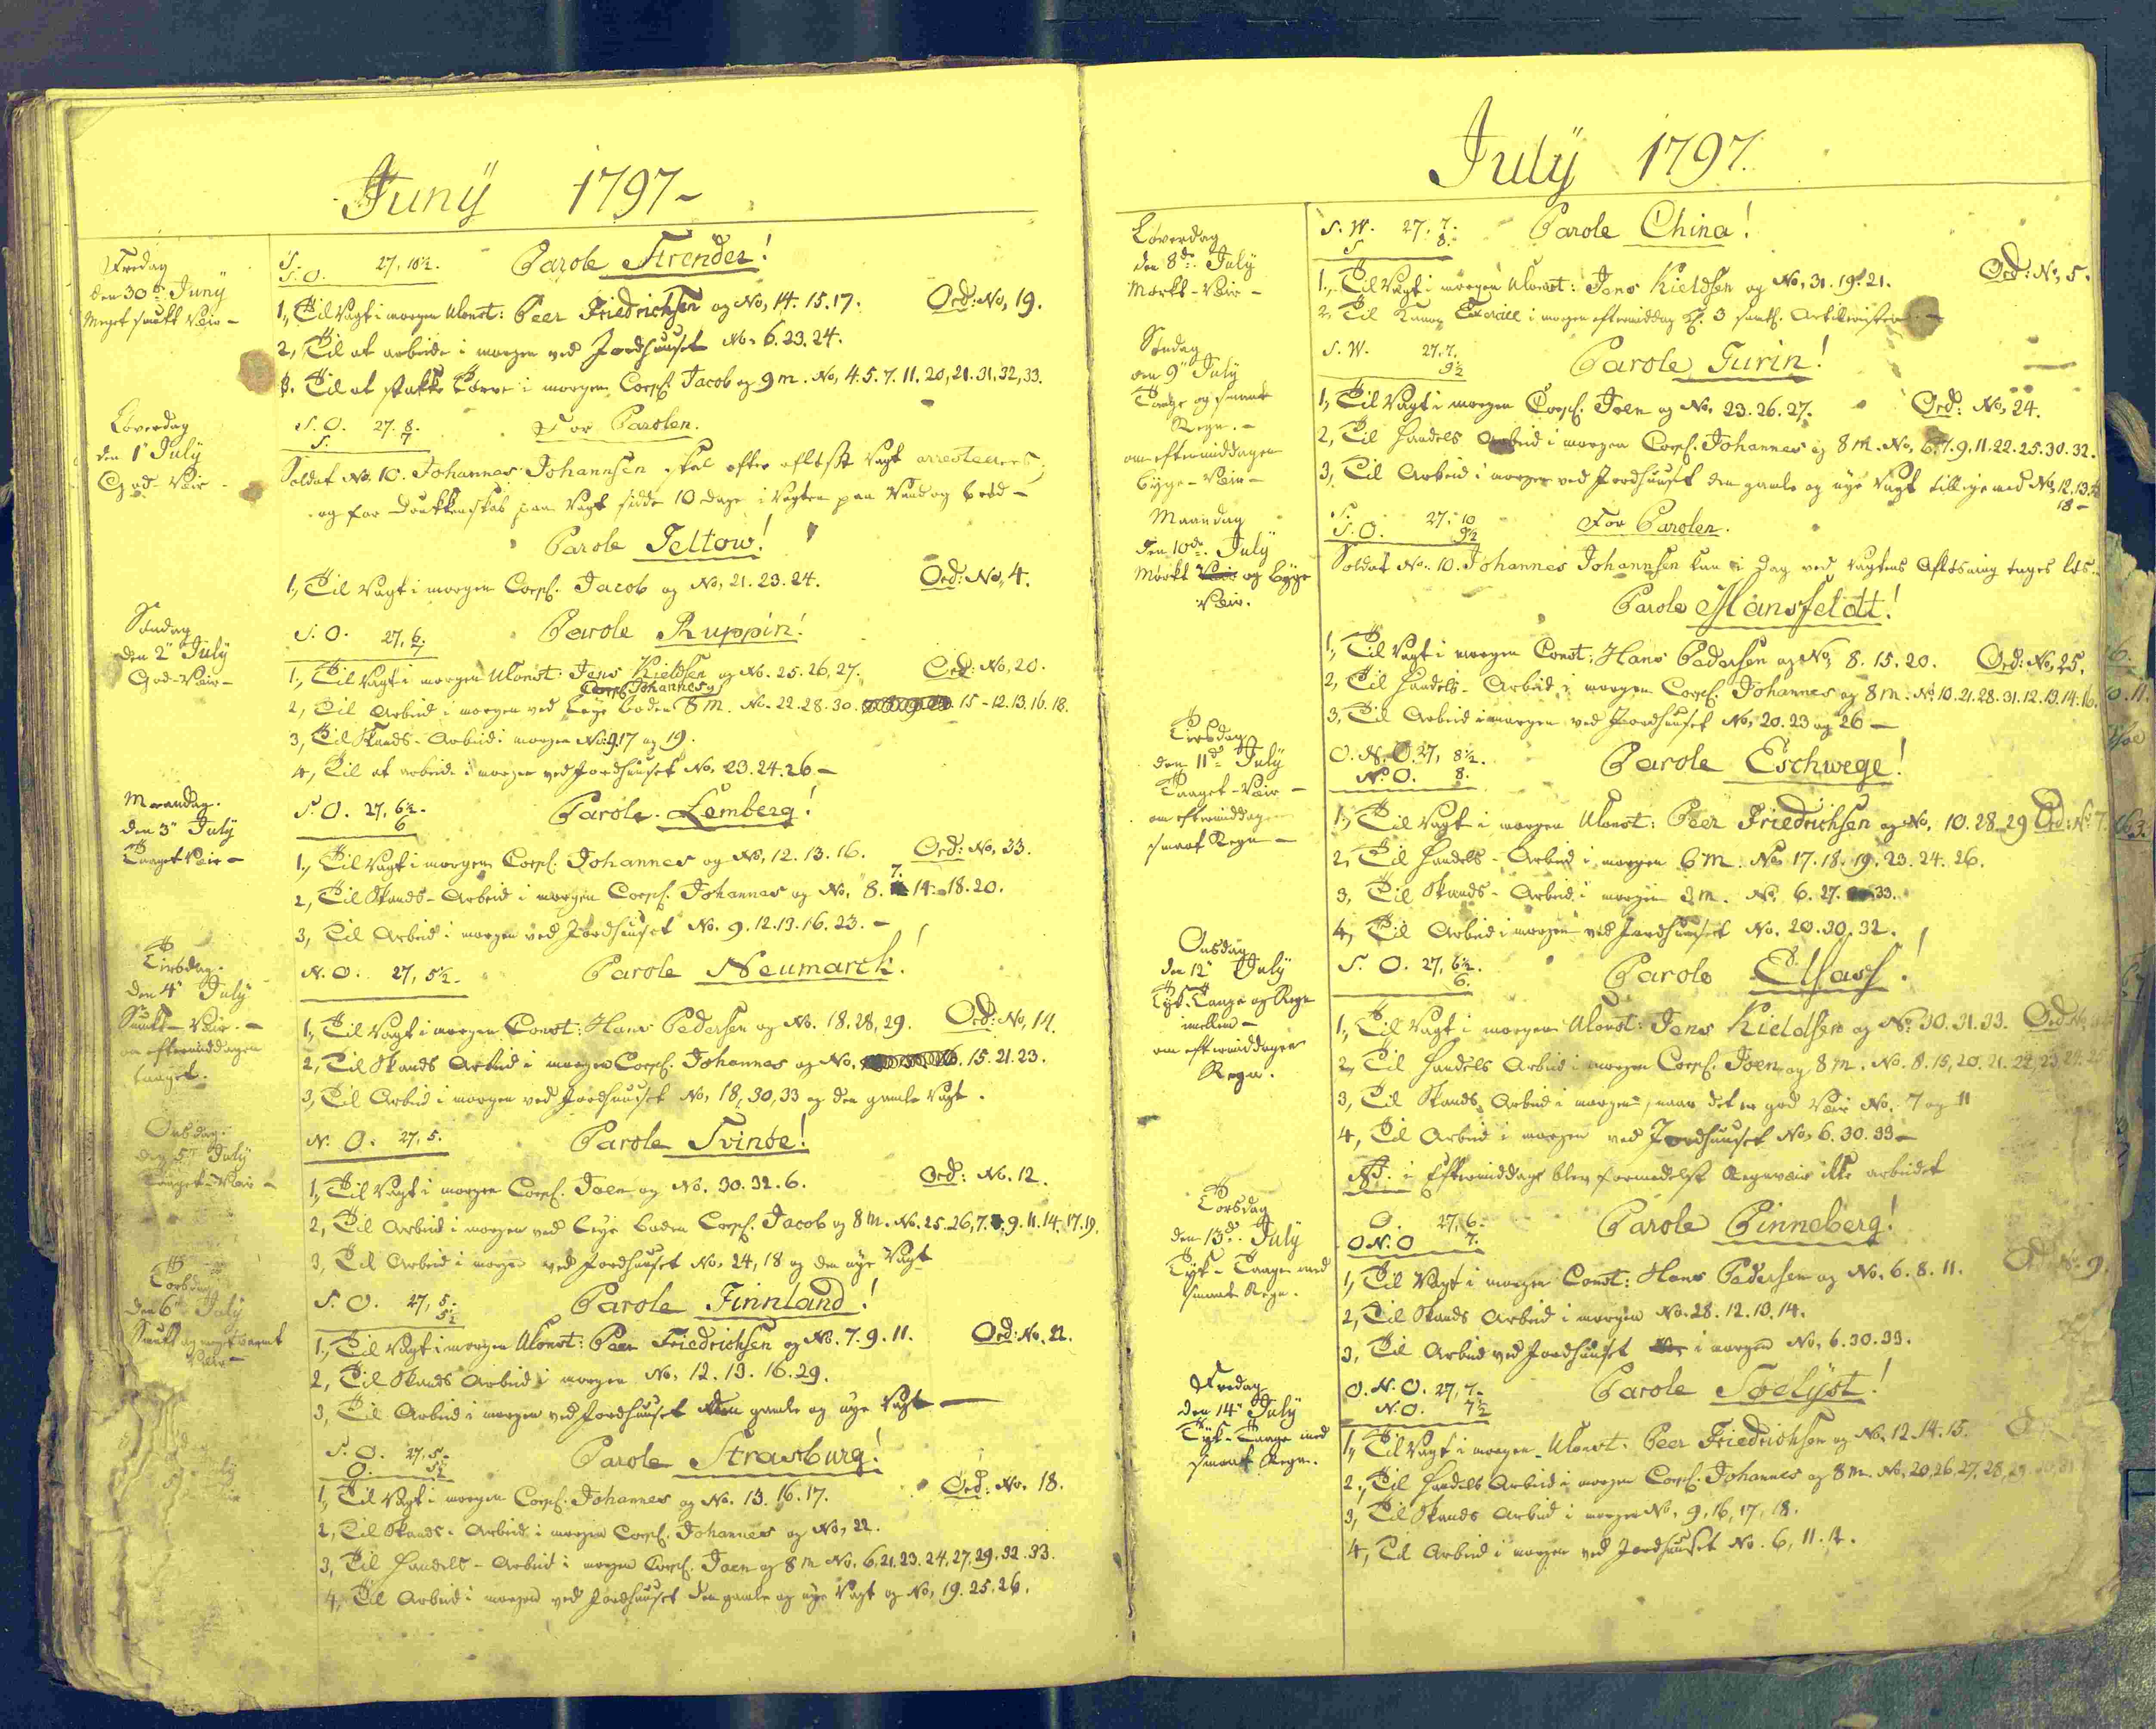 Junÿ 1797-
Fredag
den 30te Junÿ
Meget smukt Veir -
S.
S. O. 27, 10½.
Parole Strender!
1, Til Vagt i morgen UConst: Peer Friedrichsen og No, 14. 15. 17. Ord: No, 19.
2, Til at arbeide i morgen ved Jordhuuset No. 6. 23. 24.
3. Til at stakke Tørve i morgen Corpl. Jacob og 9 m. No, 4. 5. 7. 11. 20, 21. 31, 32, 33.
Løverdag
den 1" July
God-Veir -
S. O. 27. 8.
S. 7
For Parolen.
Soldat No. 10. Johannes Johannsen skal efter afløst Vagt arresteeres,
og for Drukkenskab paa Vagt sidde 10 dage i Vagten paa Vand og brød -
Parole Teltow!
1, Til Vagt i morgen Corpl. Jacob og No, 21. 23. 24. Ord: No, 4.
Søndag
den 2" July
God-Veir -
S. O. 27, 6.
7
Parole Ruppin!
1, Til Vagt i morgen UConst: Jens Kieldsen og No. 25. 26, 27. Ord: No, 20.
Corpl. Johannes og
2, Til Arbeid i morgen ved Leÿe boden 8 m. No. 22. 28. 30. 15 - 12. 13. 16. 18.
3, Til Skands-Arbeid i morgen No. 9. 17 og 19.
4, Til at arbeide i morgen ved Jordhuuset No, 23. 24. 26. -
Maandag.
den 3" July
Taaget Veir -
S. O. 27, 6½.
6
Parole Lemberg!
1, Til Vagt i morgen Corpl. Johannes og No, 12. 13. 16. Ord: No, 33.
7.
2, Til Skands-Arbeid i morgen Corpl. Johannes og No, 8. 14. 18. 20.
3, Til Arbeid i morgen ved Jordhuuset No. 9. 12. 13. 16. 23. -
Tirsdag.
den 4" July
Smukt-Veir. -
om eftermiddagen
taaget.
N. O. 27, 5½.
Parole Neumarck!
1, Til Vagt i morgen Const: Hans Pedersen og No. 18. 28, 29. Ord: No, 14.
2, Til Skands Arbeid i morgen Corpl. Johannes og No, 15. 21. 23.
3, Til Arbeid i morgen ved Jordhuuset No, 18, 30, 33 og den gamle Vagt.
Onsdag.
den 5te July
Taaget-Veir -
N. O. 27, 5.
Parole Svinöe!
1, Til Vagt i morgen Corpl. Joen og No. 30. 32. 6. Ord: No. 12.
2, Til Arbeid i morgen ved Leÿe boden Corpl. Jacob og 8 m. No. 25. 26, 7. 9. 11. 14. 17. 19.
3, Til Arbeid i morgen ved Jordhuuset No. 24, 18 og den nye Vagt
Torsdag
den 6te July
Smukt og meget varmt
Veir -
S. O. 27, 5.
5½
Parole Finnland!
1, Til Vagt i morgen UConst: Peer Friedrichsen og No. 7. 9. 11. Ord: No. 22.
2, Til Skands Arbeid i morgen No, 12. 13. 16. 29.
3, Til Arbeid i morgen ved Jordhuuset den gamle og nye Vagt -
S. O. 27, 5.
O. 5½
Parole Strasburg!
1, Til Vagt i morgen Corpl. Johannes og No. 13. 16. 17. Ord: No. 18.
2, Til Skands-Arbeid i morgen Corpl. Johannes og No, 22.
3, Til Handels-Arbeid i morgen Corpl. Joen og 8 m No, 6, 21, 23. 24, 27, 29. 32. 33.
4, Til Arbeid i morgen ved Jordhuuset den gamle og nye Vagt og No, 19. 25. 26.
July 1797.
Løverdag
den 8de July
Mørkt-Veir -
S. W. 27, 7.
S 8.
Parole China!
1, Til Vagt i morgen UConst: Jens Kieldsen og No, 31. 19. 21. Ord: No, 5.
2, Til Kanon Exercice i morgen eftermiddag Kl. 3 samtl. Artilleristen. -
Søndag
den 9" July
Taage og smaat
Regn. -
om eftermiddagen
bÿge-Veir -
S. W. 27, 7.
9½
Parole Turin!
1, Til Vagt i morgen Corpl. Joen og No. 23. 26. 27. Ord: No, 24.
2, Til Handels Arbeid i morgen Corpl. Johannes og 8 m. No, 6. 7. 9. 11. 22. 25. 30. 32.
3, Til Arbeid i morgen ved Jordhuuset den gamle og nye Vagt tillige med No, 12, 13. 14
18 -
Maandag
den 10de July
Mørkt Veir og bÿge
Veir.
S. 27, 10
S. O. 9½
For Parolen.
Soldat No. 10. Johannes Johannsen kan i dag ved vagtens Afløsning tages løs.
Parole Mansfeldt!
1, Til Vagt i morgen Const: Hans Pedersen og No, 8. 15. 20. Ord: No, 25.
2, Til Handels-Arbeid i morgen Corpl. Johannes og 8 m. No 10. 21. 28. 31. 12. 13. 14. 16.
3, Til Arbeid i morgen ved Jordhuuset No, 20. 23 og 26 -
Tirsdag
den 11de July
Taaget-Veir -
om eftermiddagen
smaat Regn -
O. N. O. 27, 8½.
N. O. 8.
Parole Eschwege!
1, Til Vagt i morgen UConst: Peer Friedrichsen og No, 10. 28. 29 Ord: No 7.
2, Til Handels-Arbeid i morgen 6 m. No 17. 18. 19. 23. 24. 26.
3, Til Skands-Arbeid i morgen 3 m. No, 6. 27. 33.
4, Til Arbeid i morgen ved Jordhuuset No. 20. 30. 32.
Onsdag
den 12" July
Tyk-Taage og Regn
imellem -
om eftermiddagen
Regn.
S. O. 27, 6½.
6.
Parole Elsass!
1, Til Vagt i morgen UConst: Jens Kieldsen og No: 30. 31. 33. Ord No,
2, Til Handels Arbeid i morgen Corpl. Joen og 8 m. No. 8. 15, 20. 21. 22, 23, 24. 25
3, Til Skands Arbeid i morgen, naar det er god Veir No. 7 og 11
4, Til Arbeid i morgen ved Jordhuuset No, 6. 30. 33 -
NB. i Eftermiddag blev formedelst Regnveir ikke arbeidet
Torsdag
den 13de July
Tyk-Taage med
smaat Regn.
O. 27, 6.
O N. O 7.
Parole Pinneberg!
1, Til Vagt i morgen Const: Hans Pedersen og No, 6. 8. 11. Ord: No. 9.
2, Til Skands Arbeid i morgen No. 28. 12. 13. 14.
3, Til Arbeid ved Jordhuuset i morgen No, 6. 30. 33.
Fredag
den 14" July
Tyk-Taage med
smaat Regn.
O. N. O. 27, 7.
N. O. 7½
Parole Soelÿst!
1, Til Vagt i morgen UConst. Peer Friedrichsen og No. 12. 14. 15.
2, Til Handels Arbeid i morgen Corpl. Johannes og 8 m. No, 20, 26. 27, 28, 29. 30, 31
3, Til Skands Arbeid i morgen No. 9, 16, 17, 18.
4, Til Arbeid i morgen ved Jordhuuset No. 6, 11. 12.